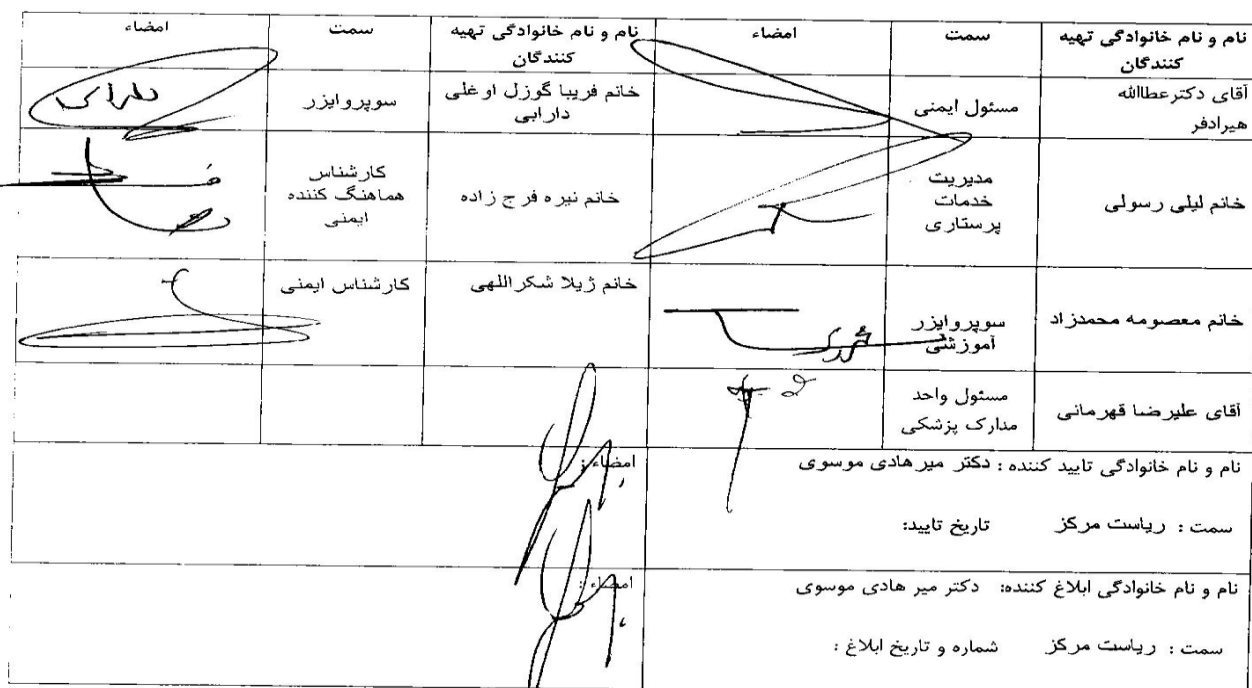 نام و نام خانوادگی تهیه کنندگان	سمت	امضاء	نام و نام خانوادگی تهیه کنندگان	سمت	امضاء
آقای دکترعطاالله هیرادفر	مسئول ایمنی		خانم فریبا گوزل اوغلی دارابی	سوپروایزر
خانم لیلی رسولی	مدیریت خدمات پرستاری		خانم نیره فرج زاده	کارشناس هماهنگ کننده ایمنی
خانم معصومه محمدزاد	سوپروایزر آموزشی		خانم ژیلا شکراللهی	کارشناس ایمنی
آقای علیرضا قهرمانی	مسئول واحد مدارک پزشکی
نام و نام خانوادگی تایید کننده : دکتر میرهادی موسوی	امضاء :
سمت : ریاست مرکز	تاریخ تایید:
نام و نام خانوادگی ابلاغ کننده: دکتر میر هادی موسوی	امضاء :
سمت : ریاست مرکز	شماره و تاریخ ابلاغ :